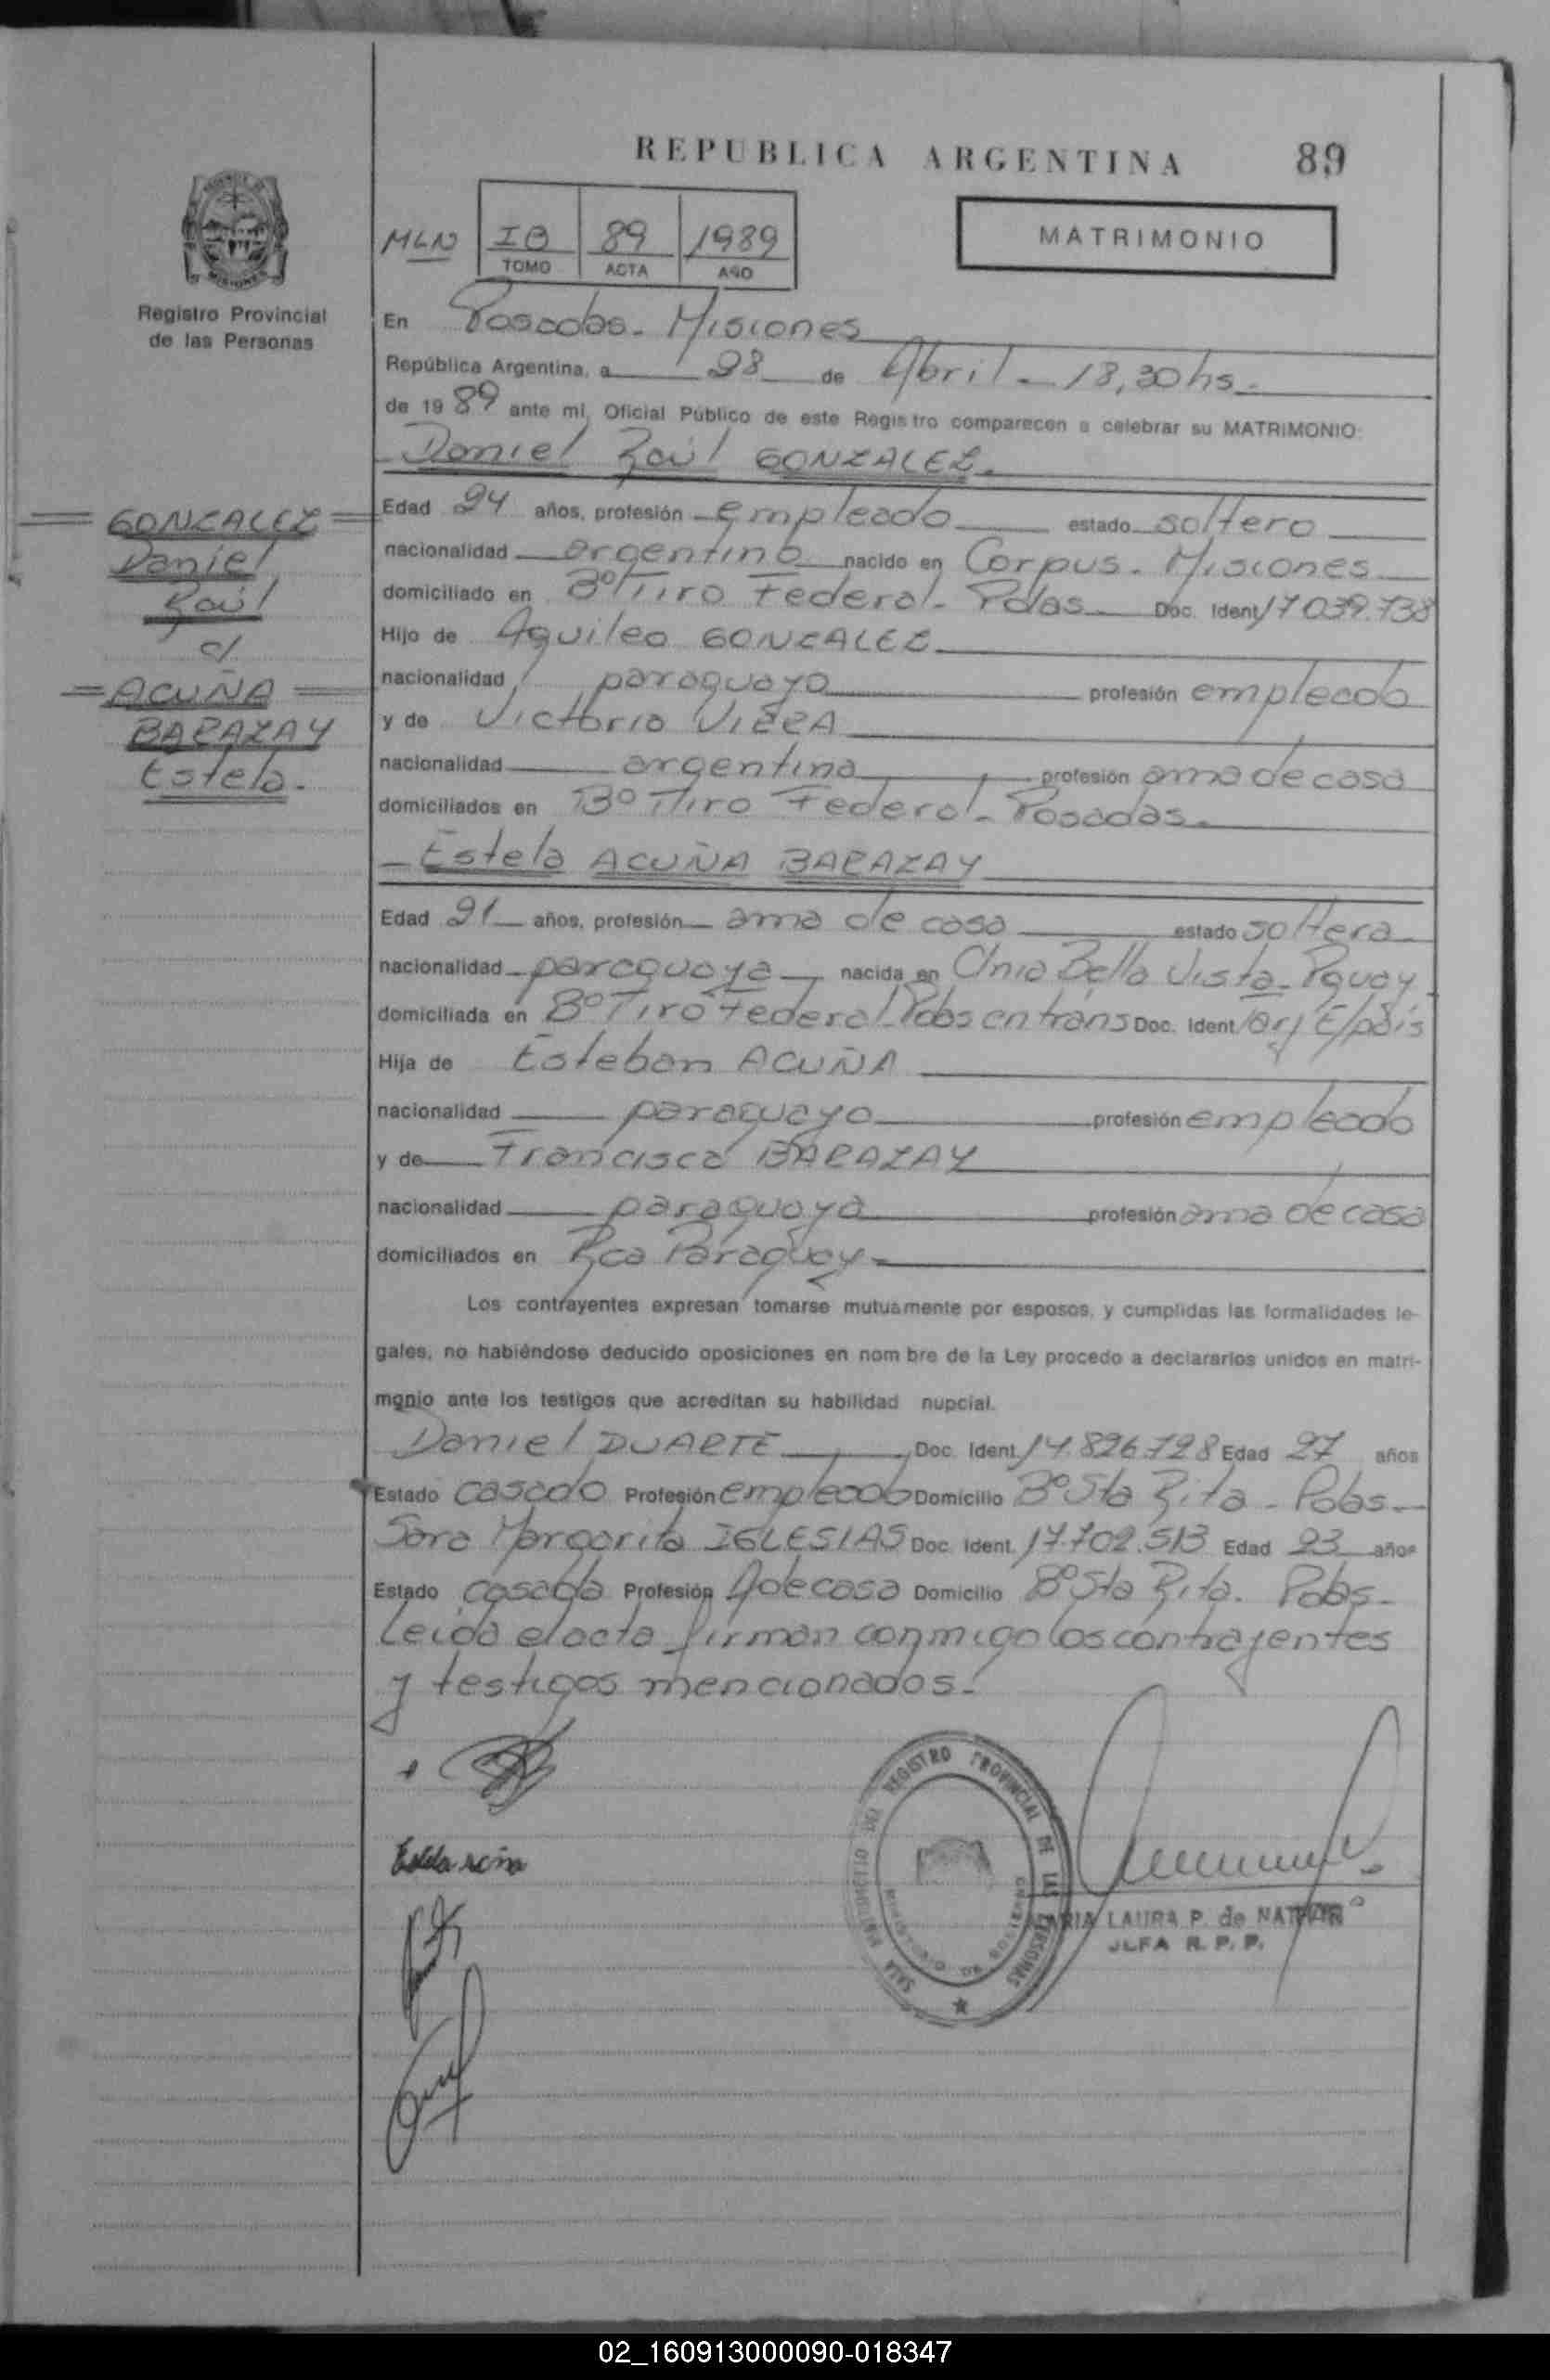 REPUBLICA ARGENTINA 89
MLN IB 89 1989
TOMO ACTA AÑO
MATRIMONIO
Registro Provincial
de las Personas
En Posadas - Misiones
República Argentina, a 28 de Abril - 18,30 hs.
de 1989 ante mi, Oficial Público de este Registro comparecen a celebrar su MATRIMONIO:
Daniel Raúl GONZALEZ.
GONZALEZ
Daniel
Raúl
c/
ACUÑA
BARAZAY
Estela.
Edad 24 años, profesión empleado estado soltero
nacionalidad argentina nacido en Corpus. Misiones
domiciliado en Bº Tiro Federal - Pdas Doc. Ident 17039.738
Hijo de Aquileo GONZALEZ
nacionalidad paraguaya profesión empleado
y de Victoria VIERA
nacionalidad argentina profesión ama de casa
domiciliados en Bº Tiro Federal - Posadas.
Estela ACUÑA BARAZAY
Edad 21 años, profesión ama de casa estado soltera
nacionalidad paraguaya nacida en Clnia Bella Vista - Pguay
domiciliada en Bº Tiro Federal Pdas en tráns Doc. Ident E/país
Hija de Esteban ACUÑA
nacionalidad paraguayo profesión empleado
y de Francisca BARAZAY
nacionalidad paraguaya profesión ama de casa
domiciliados en Rca Paraguay
Los contrayentes expresan tomarse mutuamente por esposos, y cumplidas las formalidades le-
gales, no habiéndose deducido oposiciones en nombre de la Ley procedo a declararlos unidos en matri-
monio ante los testigos que acreditan su habilidad nupcial.
Daniel DUARTE Doc. Ident. 14.826.728 Edad 27 años
Estado casado Profesión empleado Domicilio Bº Sta Rita - Pdas
Sara Margarita IGLESIAS Doc. Ident. 17.702.513 Edad 23 años
Estado casada Profesión A de casa Domicilio Bº Sta Rita. Pdas.
Leída el acta firman conmigo los contrayentes
y testigos mencionados.
REGISTRO PROVINCIAL DE LAS PERSONAS
MARIA LAURA P. de
JEFA R. P. P.
02_160913000090-018347